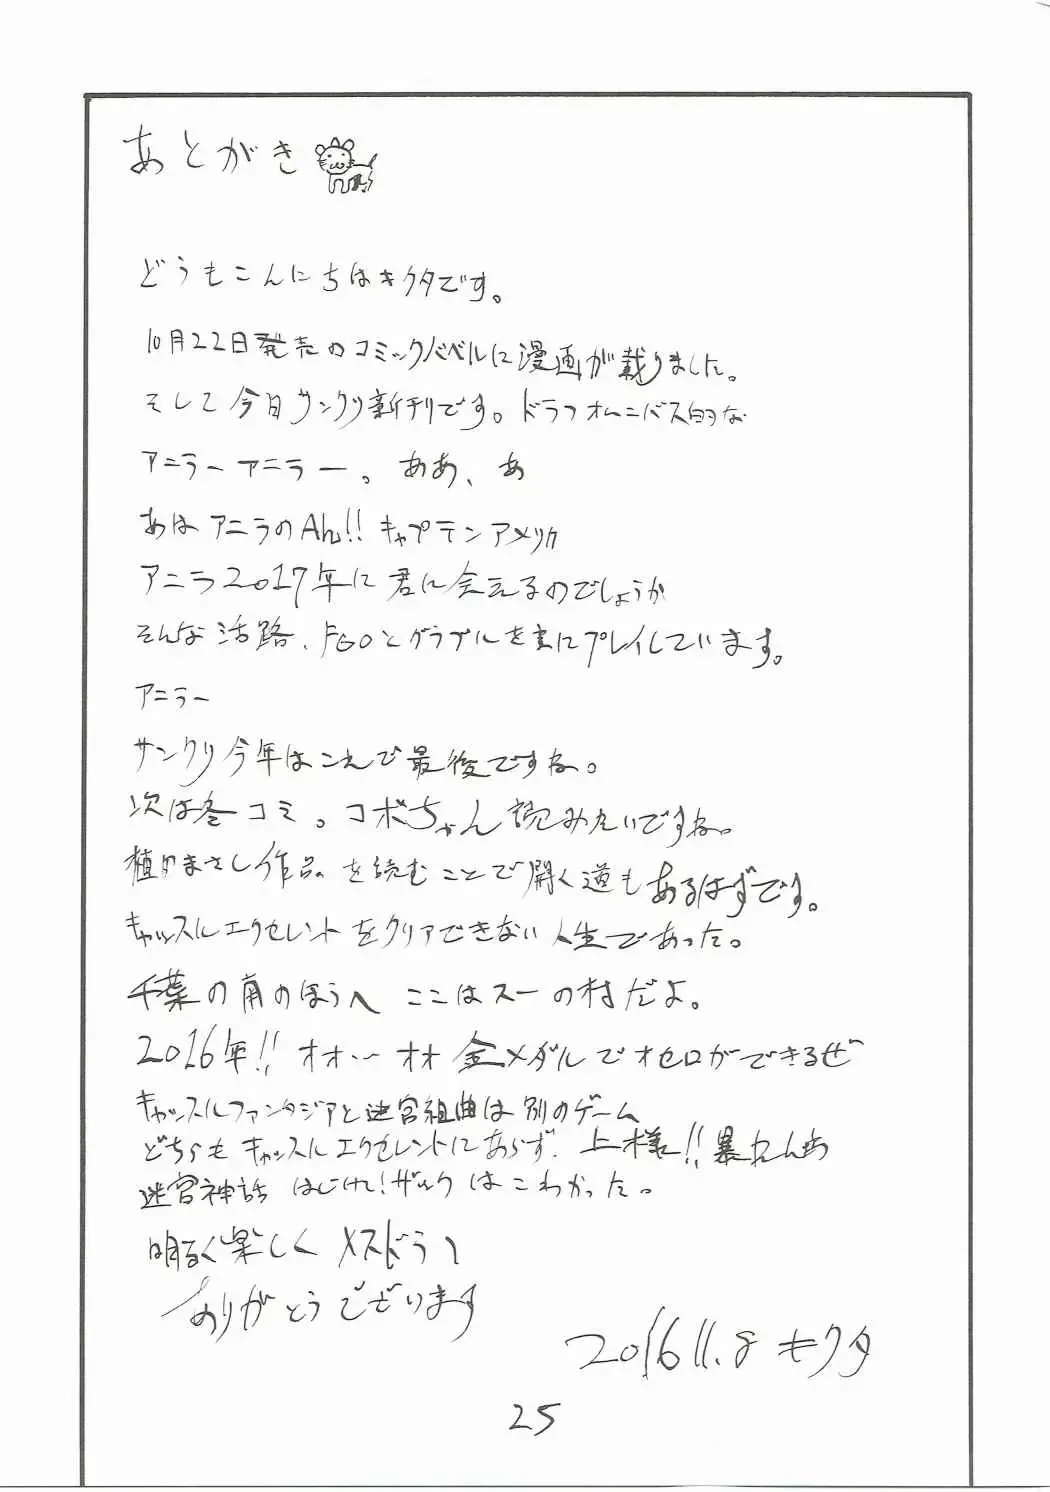 あとがき
どうもこんにちはキクタです。
10月22日発売のコミックバベルに漫画が載りました。
そして今日サンクリ新刊です。ドラフオムニバス的な
アニラーアニラー。ああ、あ
あはアニラのAh!! キャプテンアメリカ
アニラ2017年に君に会えるのでしょうか
そんな活路、FGOとグラブルを主にプレイしています。
アニラー
サンクリ今年はこれで最後ですね。
次は冬コミ。コボちゃん読みたいですね。
植田まさし作品を読むことで開く道もあるはずです。
キャッスルエクセレントをクリアできない人生であった。
千葉の南のほうへ ここはスーの村だよ。
2016年!! オオ… オオ 金メダルでオセロができるぜ
キャッスルファンタジアと迷宮組曲は別のゲーム
どちらもキャッスルエクセレントにあらず。上様!! 暴れんぼ
迷宮神話 はじけ!ザックはこわかった。
明るく楽しくメスドラへ
ありがとうございます
2016 11.8 キクタ
25